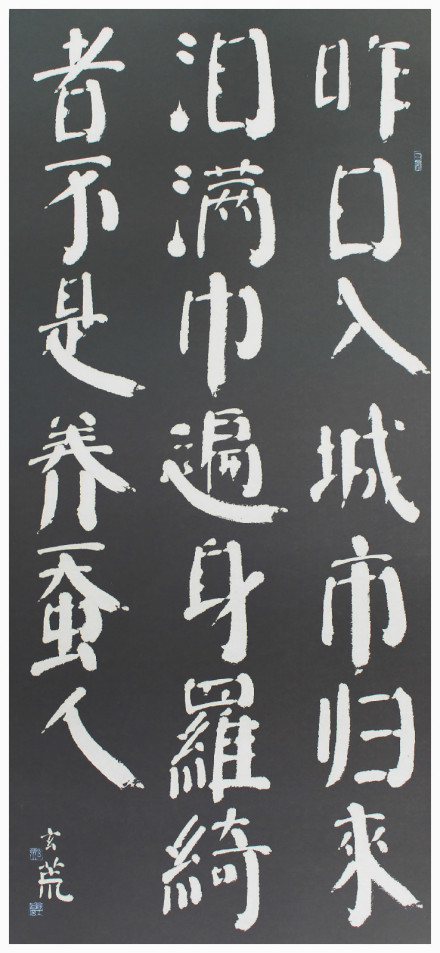 昨日入城市归来
泪满巾遍身羅綺
者不是养蚕人
玄荒